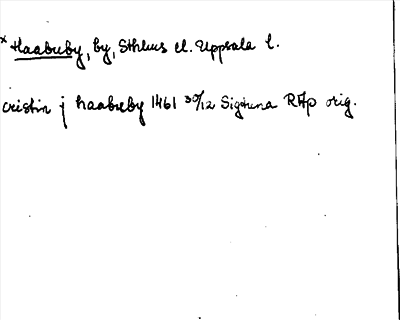 * Haabreby, by, Sthlms el. Uppsala l.
cristin j haabreby 1461 30/12 Sigtuna RAp orig.